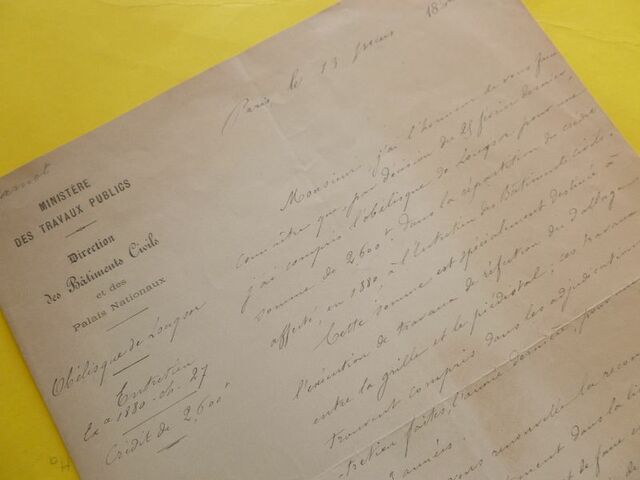 Carnot
Paris le 13 Mars 18
MINISTÈRE
DES TRAVAUX PUBLICS
Direction
des Bâtiments Civils
et des
Palais Nationaux
Obélisque de Louqsor
Entretien
Ex ce 1880. ch: 27
Crédit de 2,600 f
Monsieur, j'ai l'honneur de vous faire
connaître que, par décision du 25 février dernier,
j'ai compris l'obélisque de Louqsor pour une
somme de 2,600 f dans la répartition du crédit
affecté, en 1880, à l'Entretien des Bâtiments Civils.
Cette somme est spécialement destinée à
l'exécution de travaux de réfection du dallage
entre la grille et le piédestal; ces travaux
trouvent compris dans les adjudications
faites, l'année dernière, pour
années.
vous renouvelle la
dans la
de faire